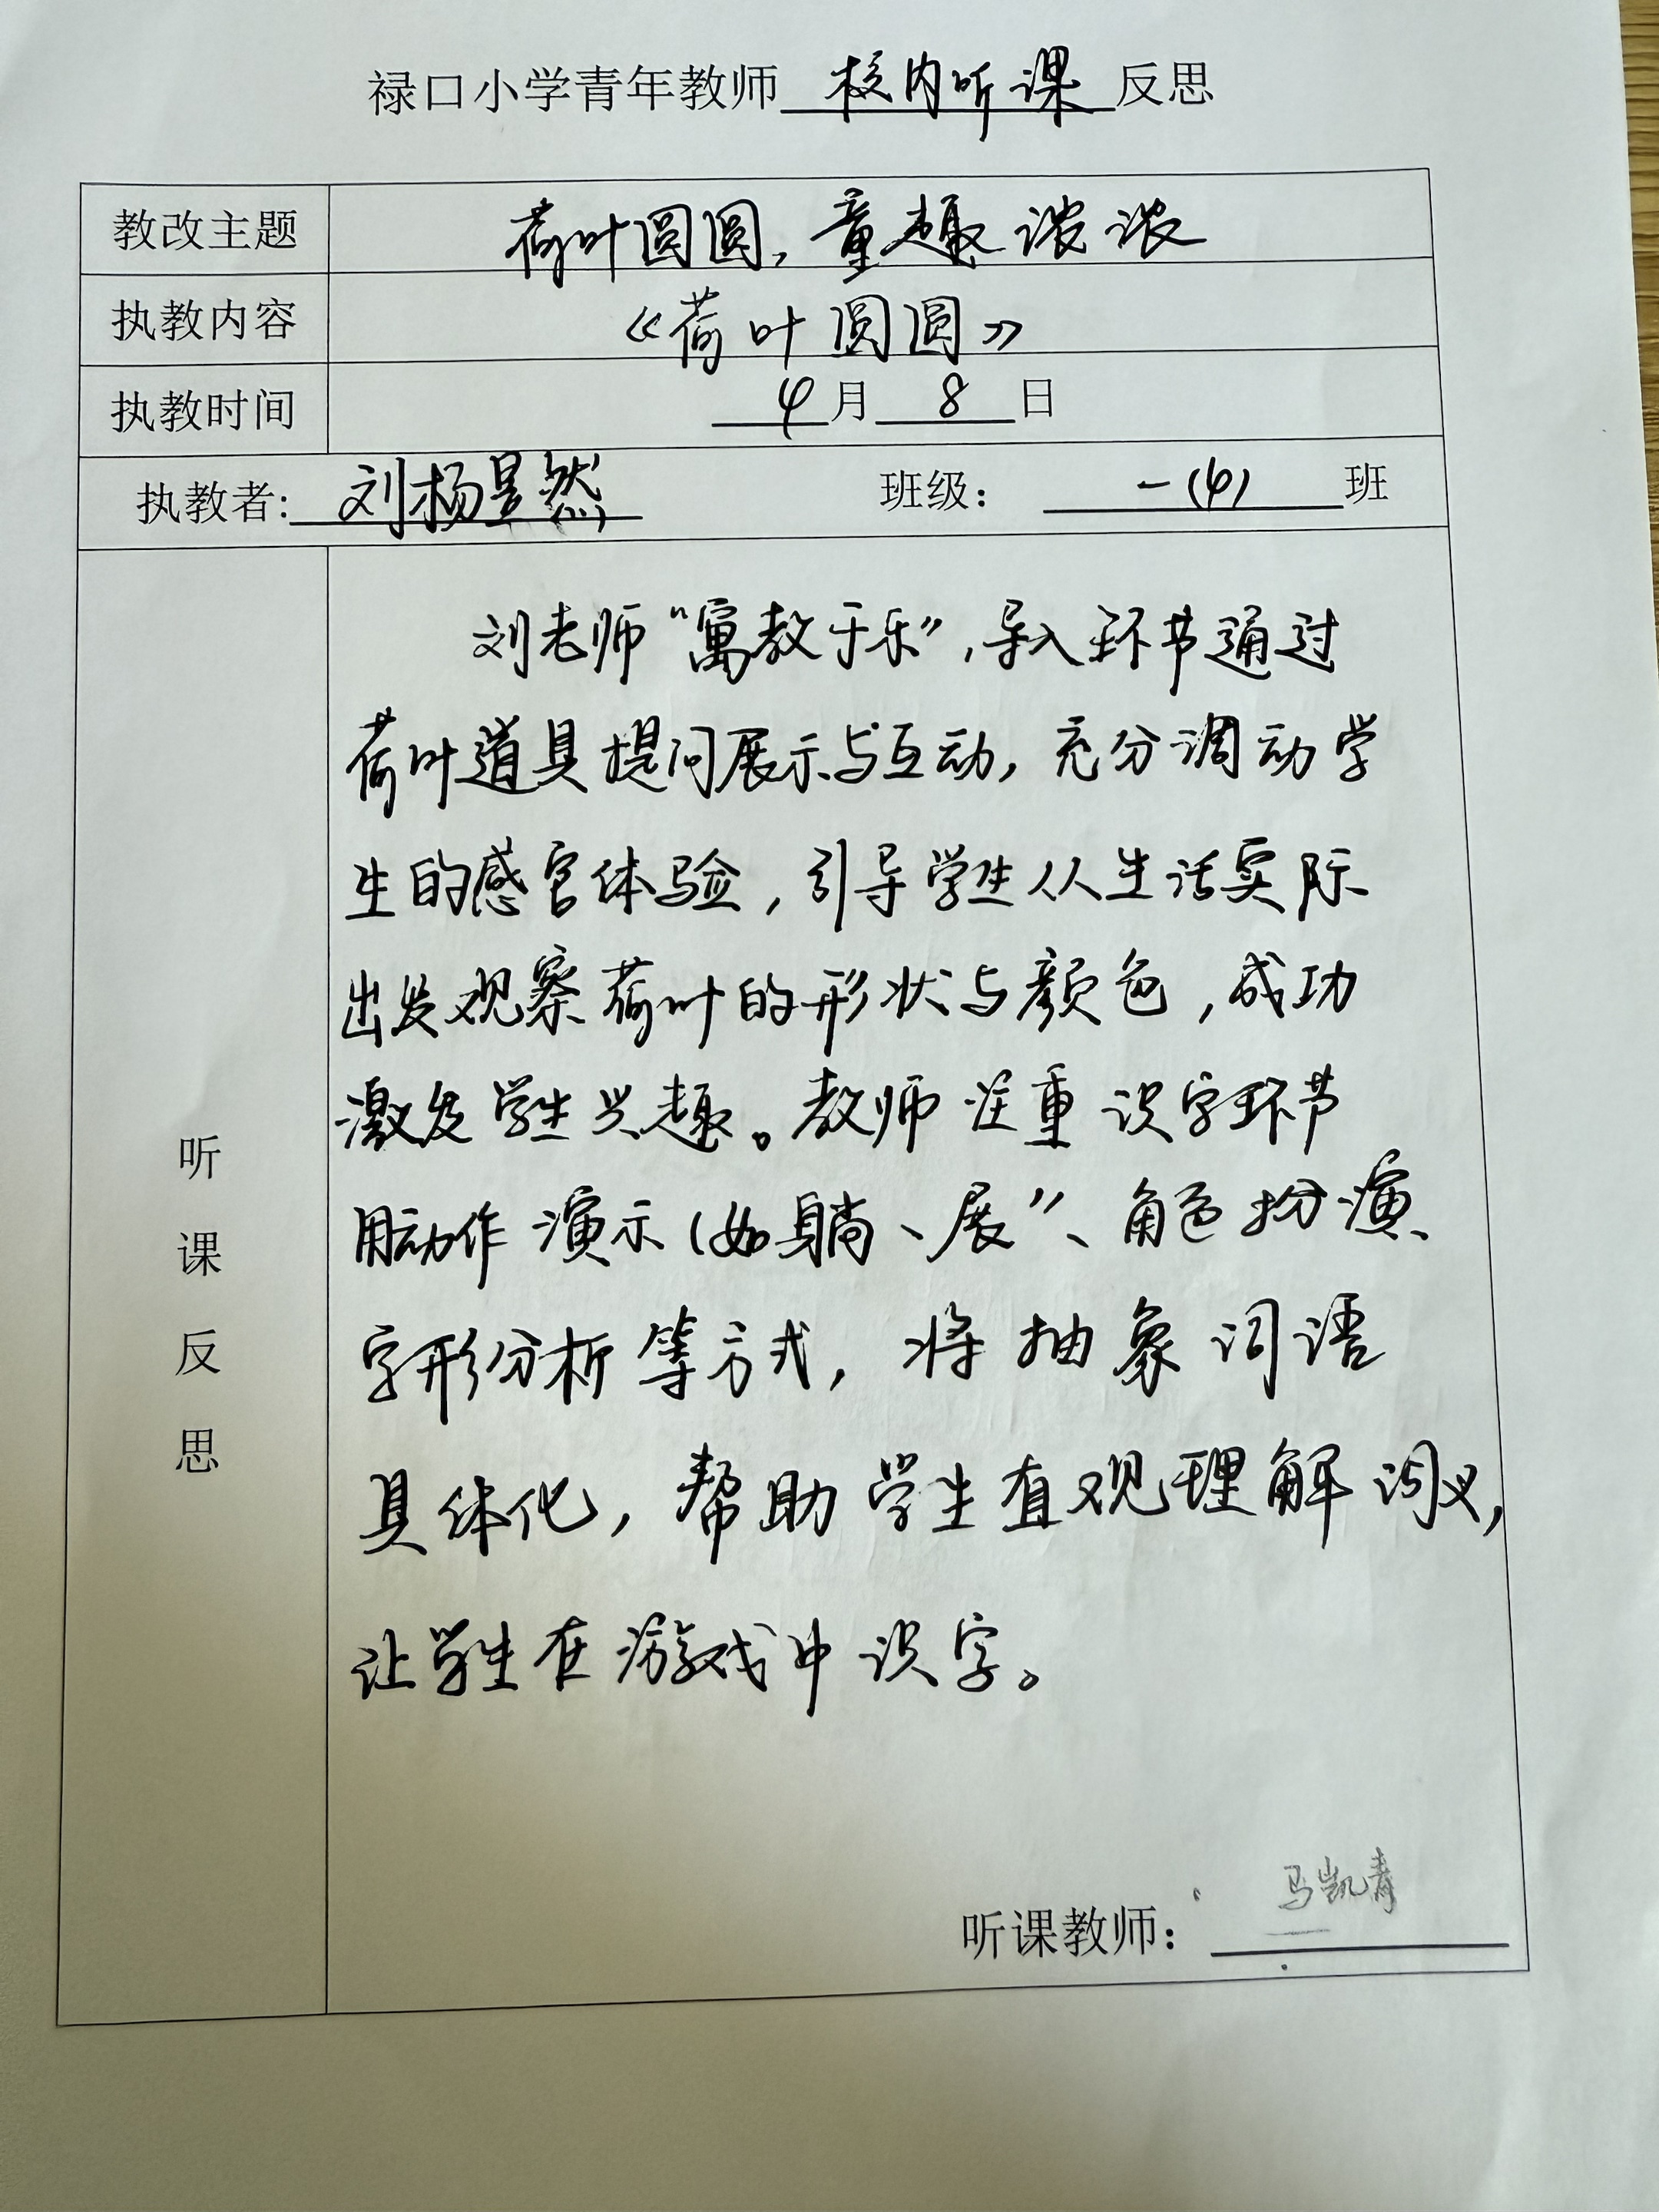 禄口小学青年教师 校内听课 反思
教改主题 荷叶圆圆,童趣浓浓
执教内容 《荷叶圆圆》
执教时间 4月8日
执教者: 刘杨昱然 班级: 一(4) 班
听课反思
刘老师“寓教于乐”,导入环节通过
荷叶道具提问展示与互动,充分调动学
生的感官体验,引导学生从生活实际
出发观察荷叶的形状与颜色,成功
激发学生兴趣。教师注重识字环节
用动作演示(如躺、展”、角色扮演、
字形分析等方式,将抽象词语
具体化,帮助学生直观理解词义,
让学生在游戏中识字。
听课教师: 马凯青